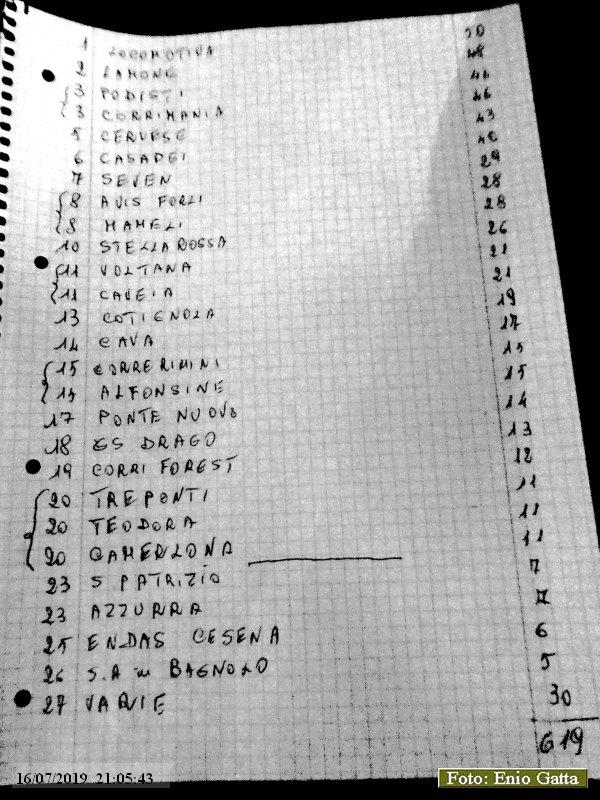 1 LOCOMOTIVA 50
2 LAMONE 48
3 PODISTI 46
3 CORRIMANIA 46
5 CERVESE 43
6 CASADEI 40
7 SEVEN 29
8 AVIS FORLI 28
8 MAMELI 28
10 STELLA ROSSA 26
11 VOLTANA 21
11 CAVEIA 21
13 COTIGNOLA 19
14 CAVA 17
15 CORRERIMINI 15
15 ALFONSINE 15
17 PONTE NUOVO 14
18 GS DRAGO 13
19 CORRI FOREST 12
20 TREPONTI 11
20 TEODORA 11
20 GAMERLONA 11
23 S PATRIZIO 7
23 AZZURRA 7
25 ENDAS CESENA 6
26 S.A in BAGNOLO 5
27 VARIE 30
619
16/07/2019 21:05:43
Foto: Enio Gatta